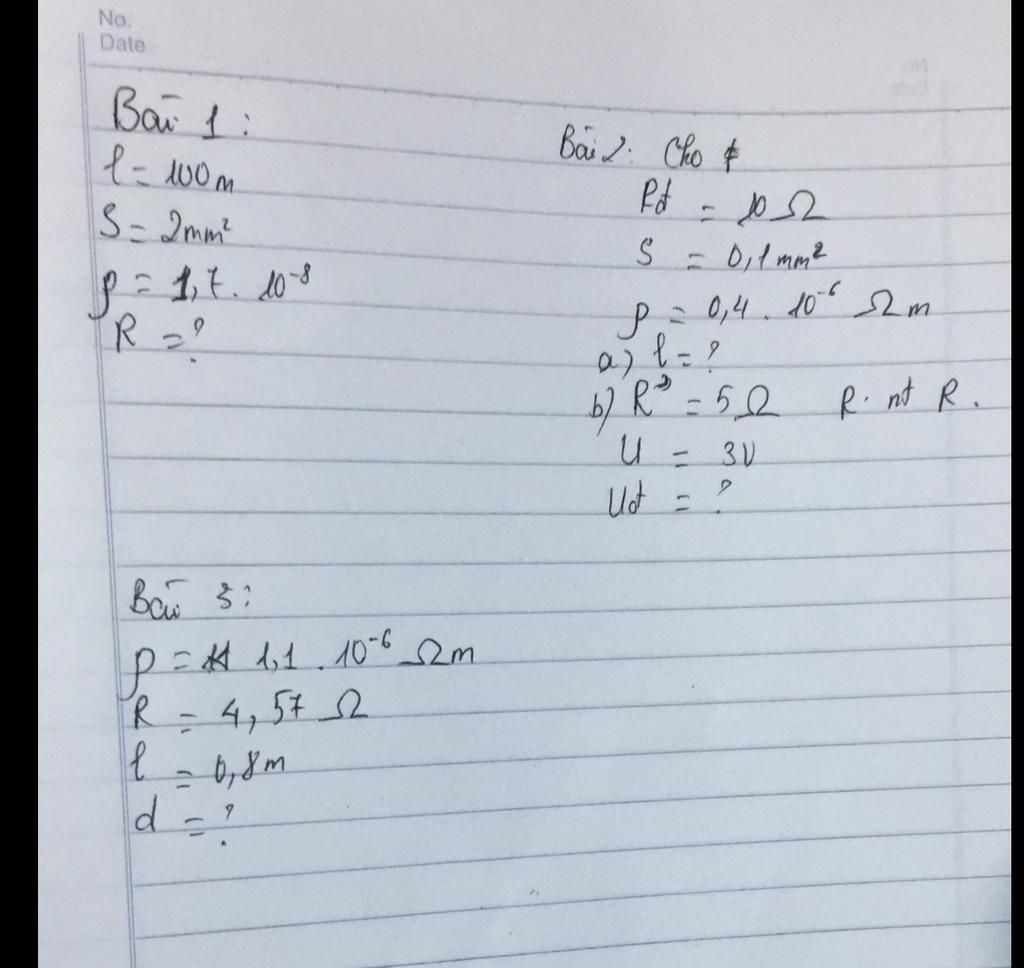 No.
Date
Bài 1:
l = 100m
S = 2mm²
ρ = 1,7. 10⁻⁸
R = ?
Bài 2: Cho
Rd = 10 Ω
S = 0,1mm²
ρ = 0,4 . 10⁻⁶ Ωm
a) l = ?
b) R = 5Ω R nt R.
U = 3V
Ud = ?
Bài 3:
ρ = 1,1 . 10⁻⁶ Ωm
R = 4,57 Ω
l = 0,8m
d = ?